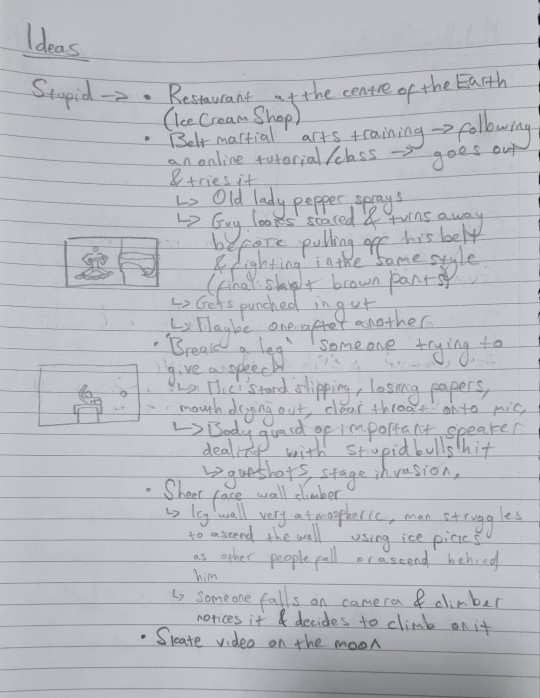 Ideas
Stupid → • Restaurant at the centre of the Earth
(Ice Cream Shop)
• Belt martial arts training → following
an online tutorial/class → goes out
& tries it
↳ Old lady pepper sprays
↳ Guy looks scared & turns away
before pulling off his belt
& fighting in the same style
(final shot brown pants)
↳ Gets punched in gut
↳ Maybe one after another
• "Break a leg" someone trying to
give a speech
↳ Mic stand slipping, losing papers,
mouth drying out, clear throat onto mic,
↳ Body guard of important speaker
dealing with stupid bullshit
↳ gunshots, stage invasion,
• Sheer face wall climber
↳ Icy wall very atmospheric, man struggles
to ascend the wall using ice picks
as other people fall or ascend behind
him
↳ Someone falls on camera & climber
notices it & decides to climb on it
• Skate video on the moon